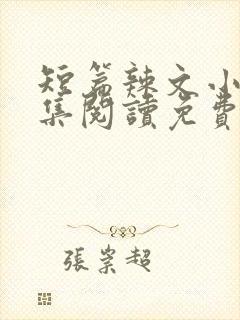 短篇辣文小
集閱讀免費
張業超